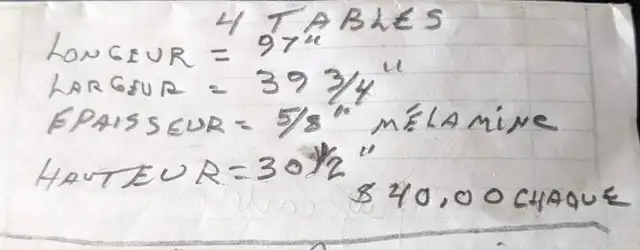 4 TABLES
LONGEUR = 97"
LARGEUR = 39 3/4"
EPAISSEUR = 5/8" MÉLAMINE
HAUTEUR = 30 1/2"
$40,00 CHAQUE